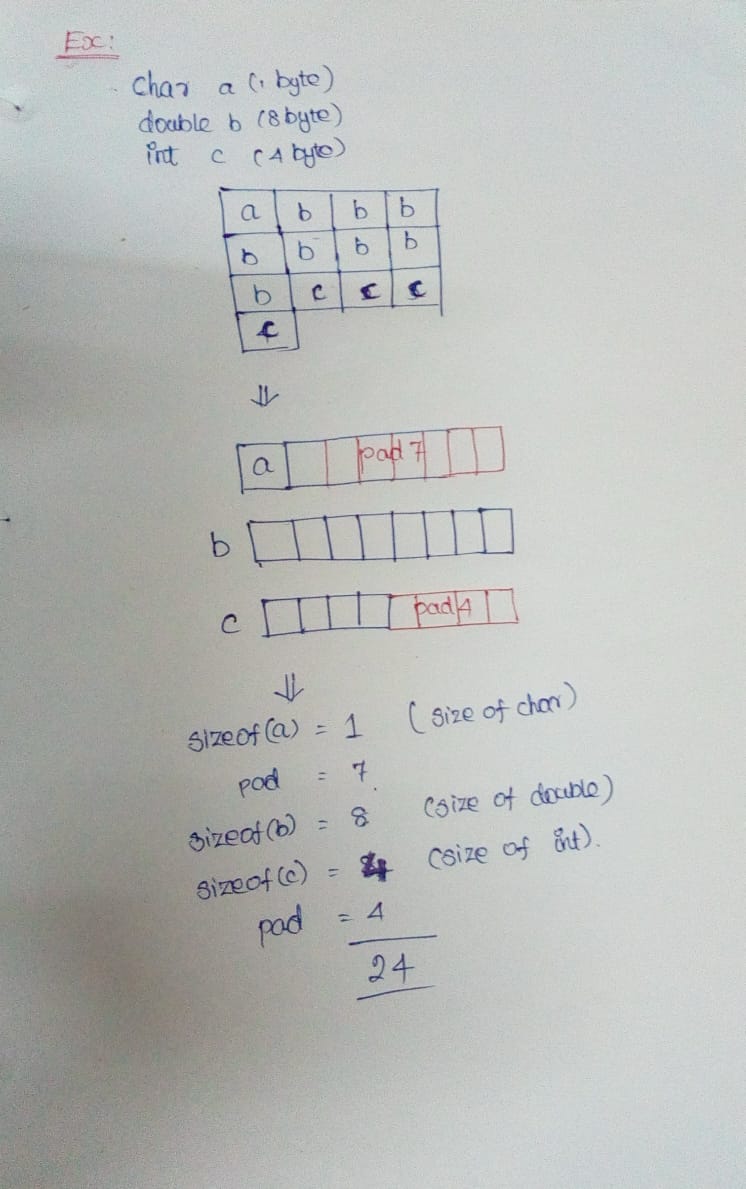 Ex:
char a (1 byte)
double b (8 byte)
int c (4 byte)
a b b b
b b b b
b c c c
c
⇓
a pad 7
b
c pad 4
⇓
sizeof(a) = 1 (size of char)
pad = 7
sizeof(b) = 8 (size of double)
sizeof(c) = 4 (size of int).
pad = 4
24